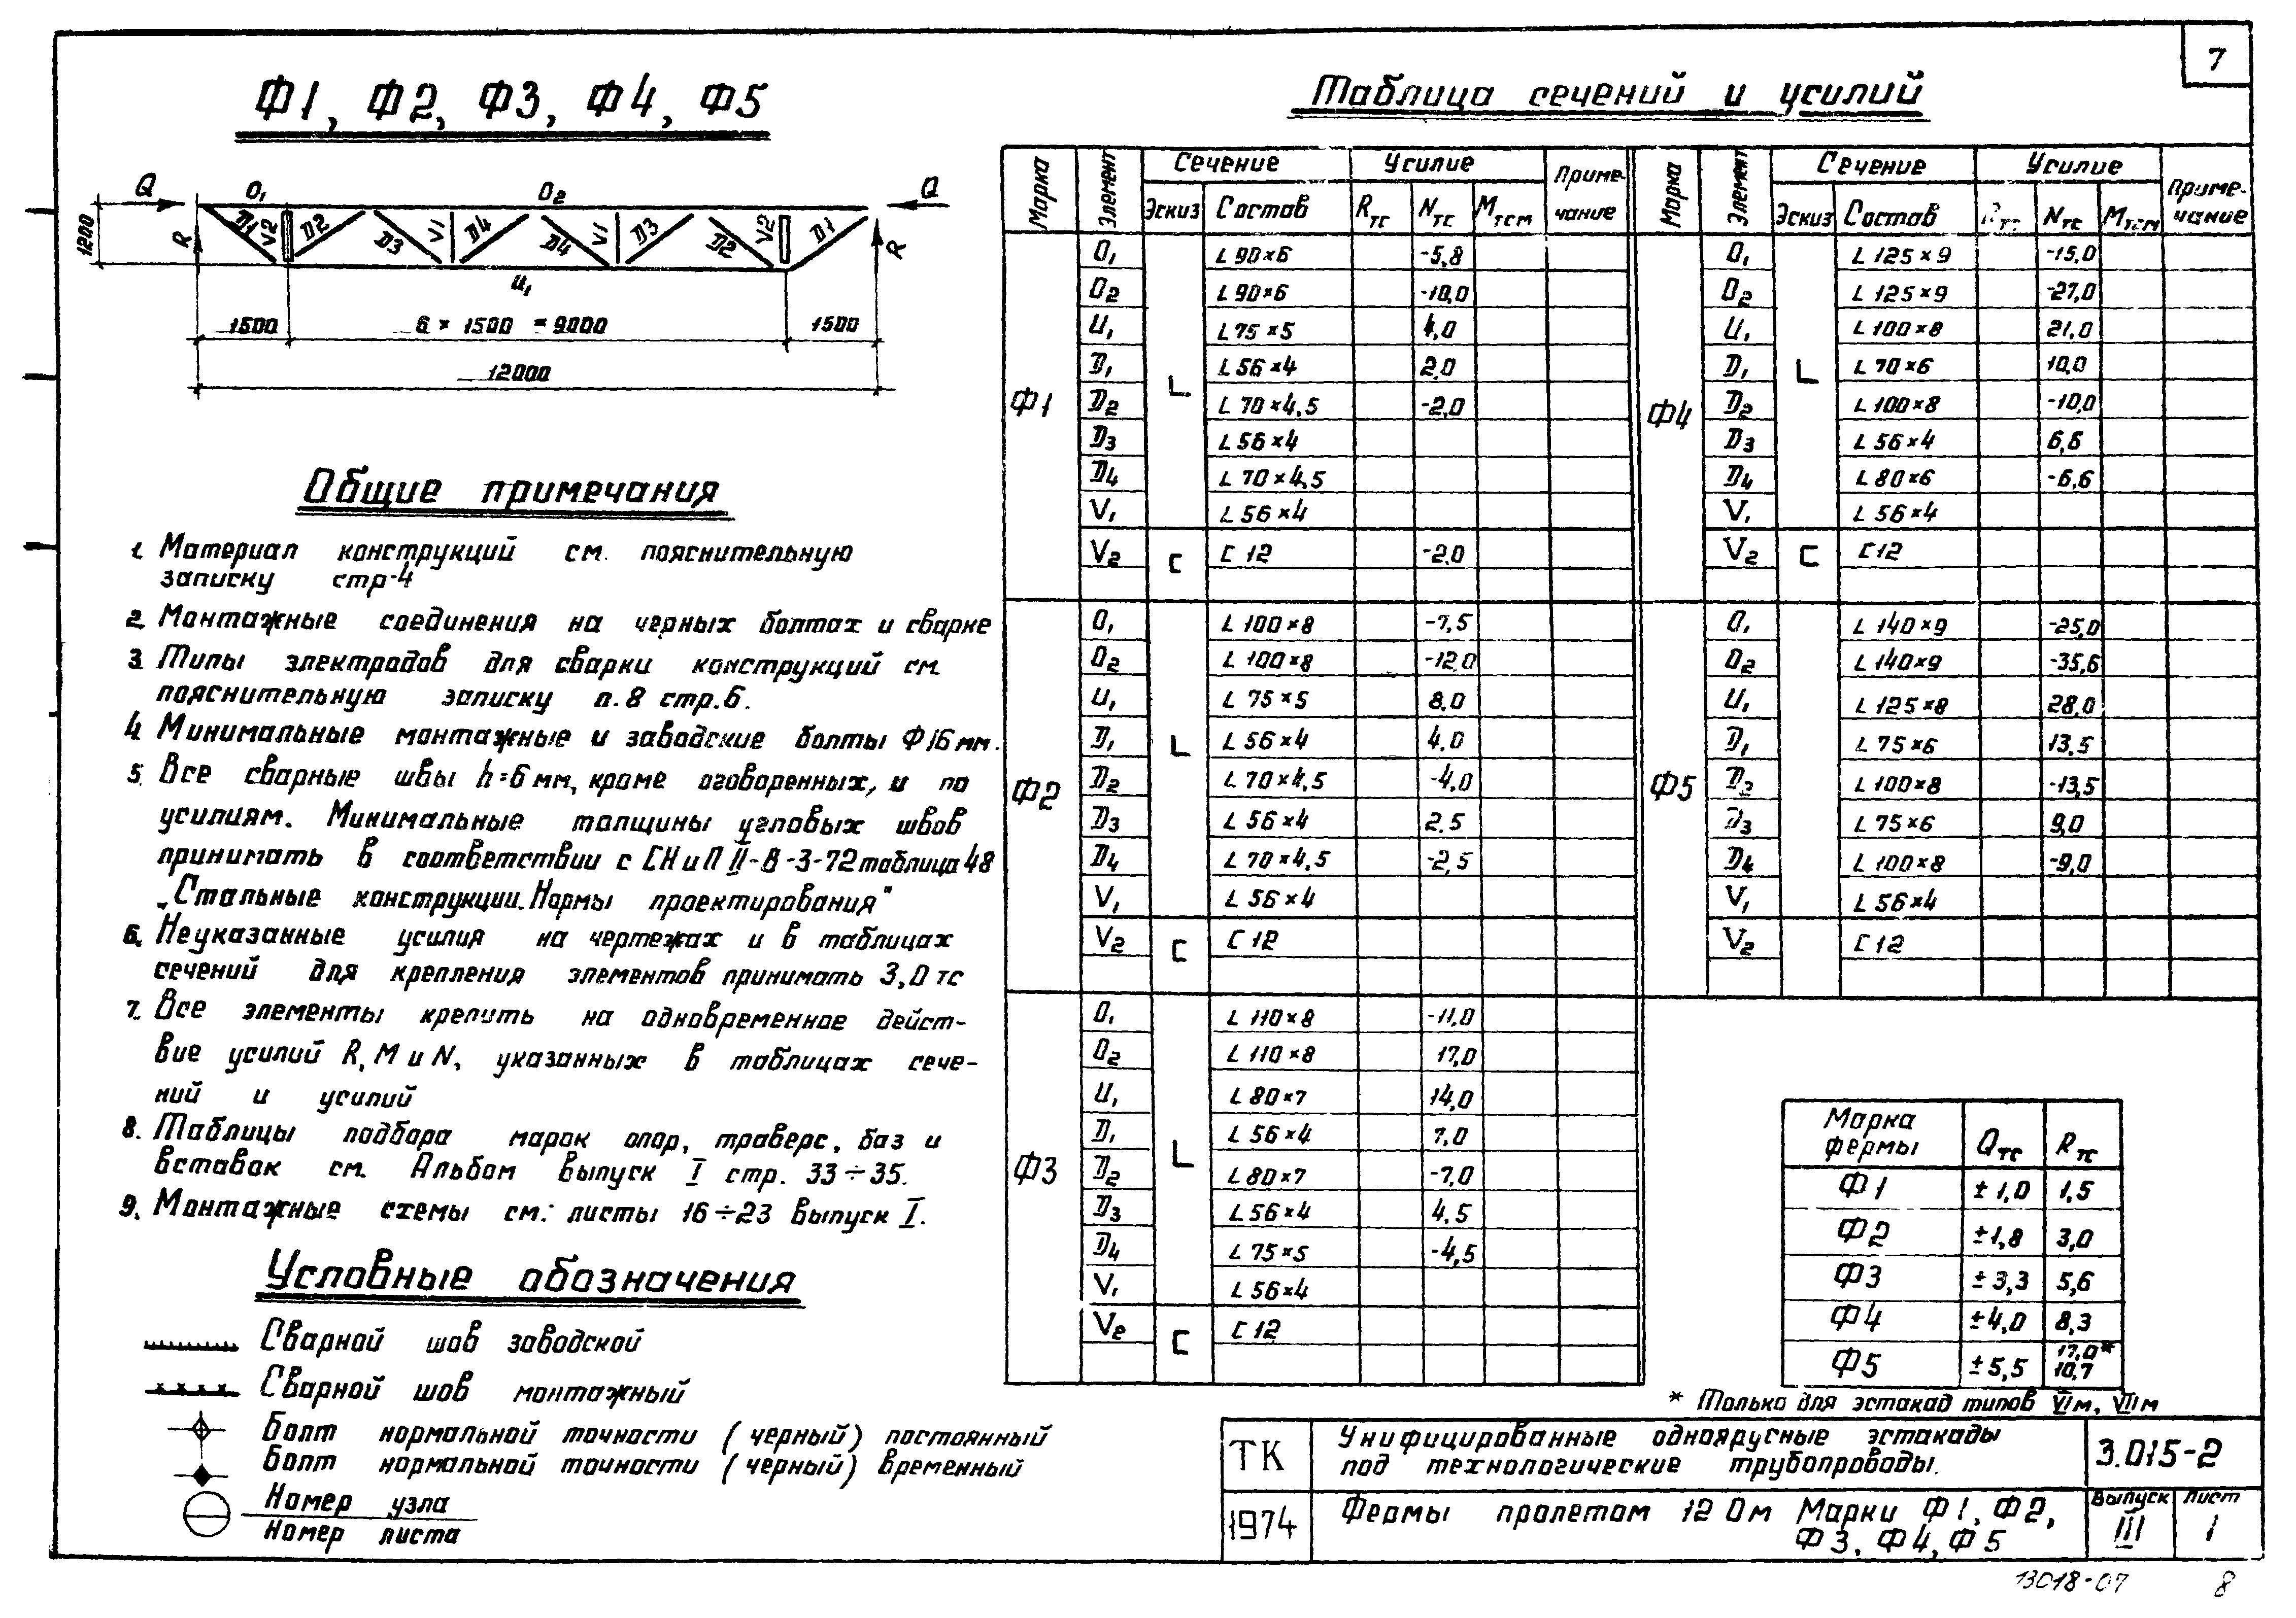 7
Ф1, Ф2, Ф3, Ф4, Ф5
Q O₁ O₂ Q
1200 R Д1 V2 Д2 Д3 V1 Д4 Д4 V1 Д3 Д2 V2 Д1 R
U₁
1500 6 × 1500 = 9000 1500
12000
Общие примечания
1. Материал конструкций см. пояснительную
записку стр-4
2. Монтажные соединения на черных болтах и сварке
3. Типы электродов для сварки конструкций см.
пояснительную записку п.8 стр.6.
4. Минимальные монтажные и заводские болты Ф16мм.
5. Все сварные швы h=6мм, кроме оговоренных, и по
усилиям. Минимальные толщины угловых швов
принимать в соответствии с СНиП II-В-3-72 таблица 48
„Стальные конструкции. Нормы проектирования"
6. Неуказанные усилия на чертежах и в таблицах
сечений для крепления элементов принимать 3,0 тс
7. Все элементы крепить на одновременное дейст-
вие усилий R, M и N, указанных в таблицах сече-
ний и усилий
8. Таблицы подбора марок опор, траверс, баз и
вставок см. Альбом выпуск I стр. 33÷35.
9. Монтажные схемы см: листы 16÷23 выпуск I.
Условные обозначения
Сварной шов заводской
Сварной шов монтажный
Болт нормальной точности (черный) постоянный
Болт нормальной точности (черный) временный
Номер узла
Номер листа
Таблица сечений и усилий
Марка Элемент Сечение Усилие Приме-чание
Эскиз Состав Rтс Nтс Mтсм
Ф1
O₁ L 90×6 -5,8
O₂ L 90×6 -10,0
U₁ L 75×5 4,0
Д₁ L 56×4 2,0
Д₂ L 70×4,5 -2,0
Д₃ L 56×4
Д₄ L 70×4,5
V₁ L 56×4
V₂ С С 12 -2,0
Ф2
O₁ L 100×8 -7,5
O₂ L 100×8 -12,0
U₁ L 75×5 8,0
Д₁ L 56×4 4,0
Д₂ L 70×4,5 -4,0
Д₃ L 56×4 2,5
Д₄ L 70×4,5 -2,5
V₁ L 56×4
V₂ С С 12
Ф3
O₁ L 110×8 -11,0
O₂ L 110×8 17,0
U₁ L 80×7 14,0
Д₁ L 56×4 7,0
Д₂ L 80×7 -7,0
Д₃ L 56×4 4,5
Д₄ L 75×5 -4,5
V₁ L 56×4
V₂ С С 12
Марка Элемент Сечение Усилие Приме-чание
Эскиз Состав Rтс Nтс Mтсм
Ф4
O₁ L 125×9 -15,0
O₂ L 125×9 -27,0
U₁ L 100×8 21,0
Д₁ L 70×6 10,0
Д₂ L 100×8 -10,0
Д₃ L 56×4 6,6
Д₄ L 80×6 -6,6
V₁ L 56×4
V₂ С С 12
Ф5
O₁ L 140×9 -25,0
O₂ L 140×9 -35,6
U₁ L 125×8 28,0
Д₁ L 75×6 13,5
Д₂ L 100×8 -13,5
Д₃ L 75×6 9,0
Д₄ L 100×8 -9,0
V₁ L 56×4
V₂ С 12
Марка фермы Qтс Rтс
Ф1 ±1,0 1,5
Ф2 ±1,8 3,0
Ф3 ±3,3 5,6
Ф4 ±4,0 8,3
Ф5 ±5,5 17,0* 10,7
* Только для эстакад типов VIм, VIIм
ТК Унифицированные одноярусные эстакады 3.015-2
под технологические трубопроводы.
1974 Фермы пролетом 12 0м Марки Ф1, Ф2,
Ф3, Ф4, Ф5
Выпуск III Лист 1
13018-07 8